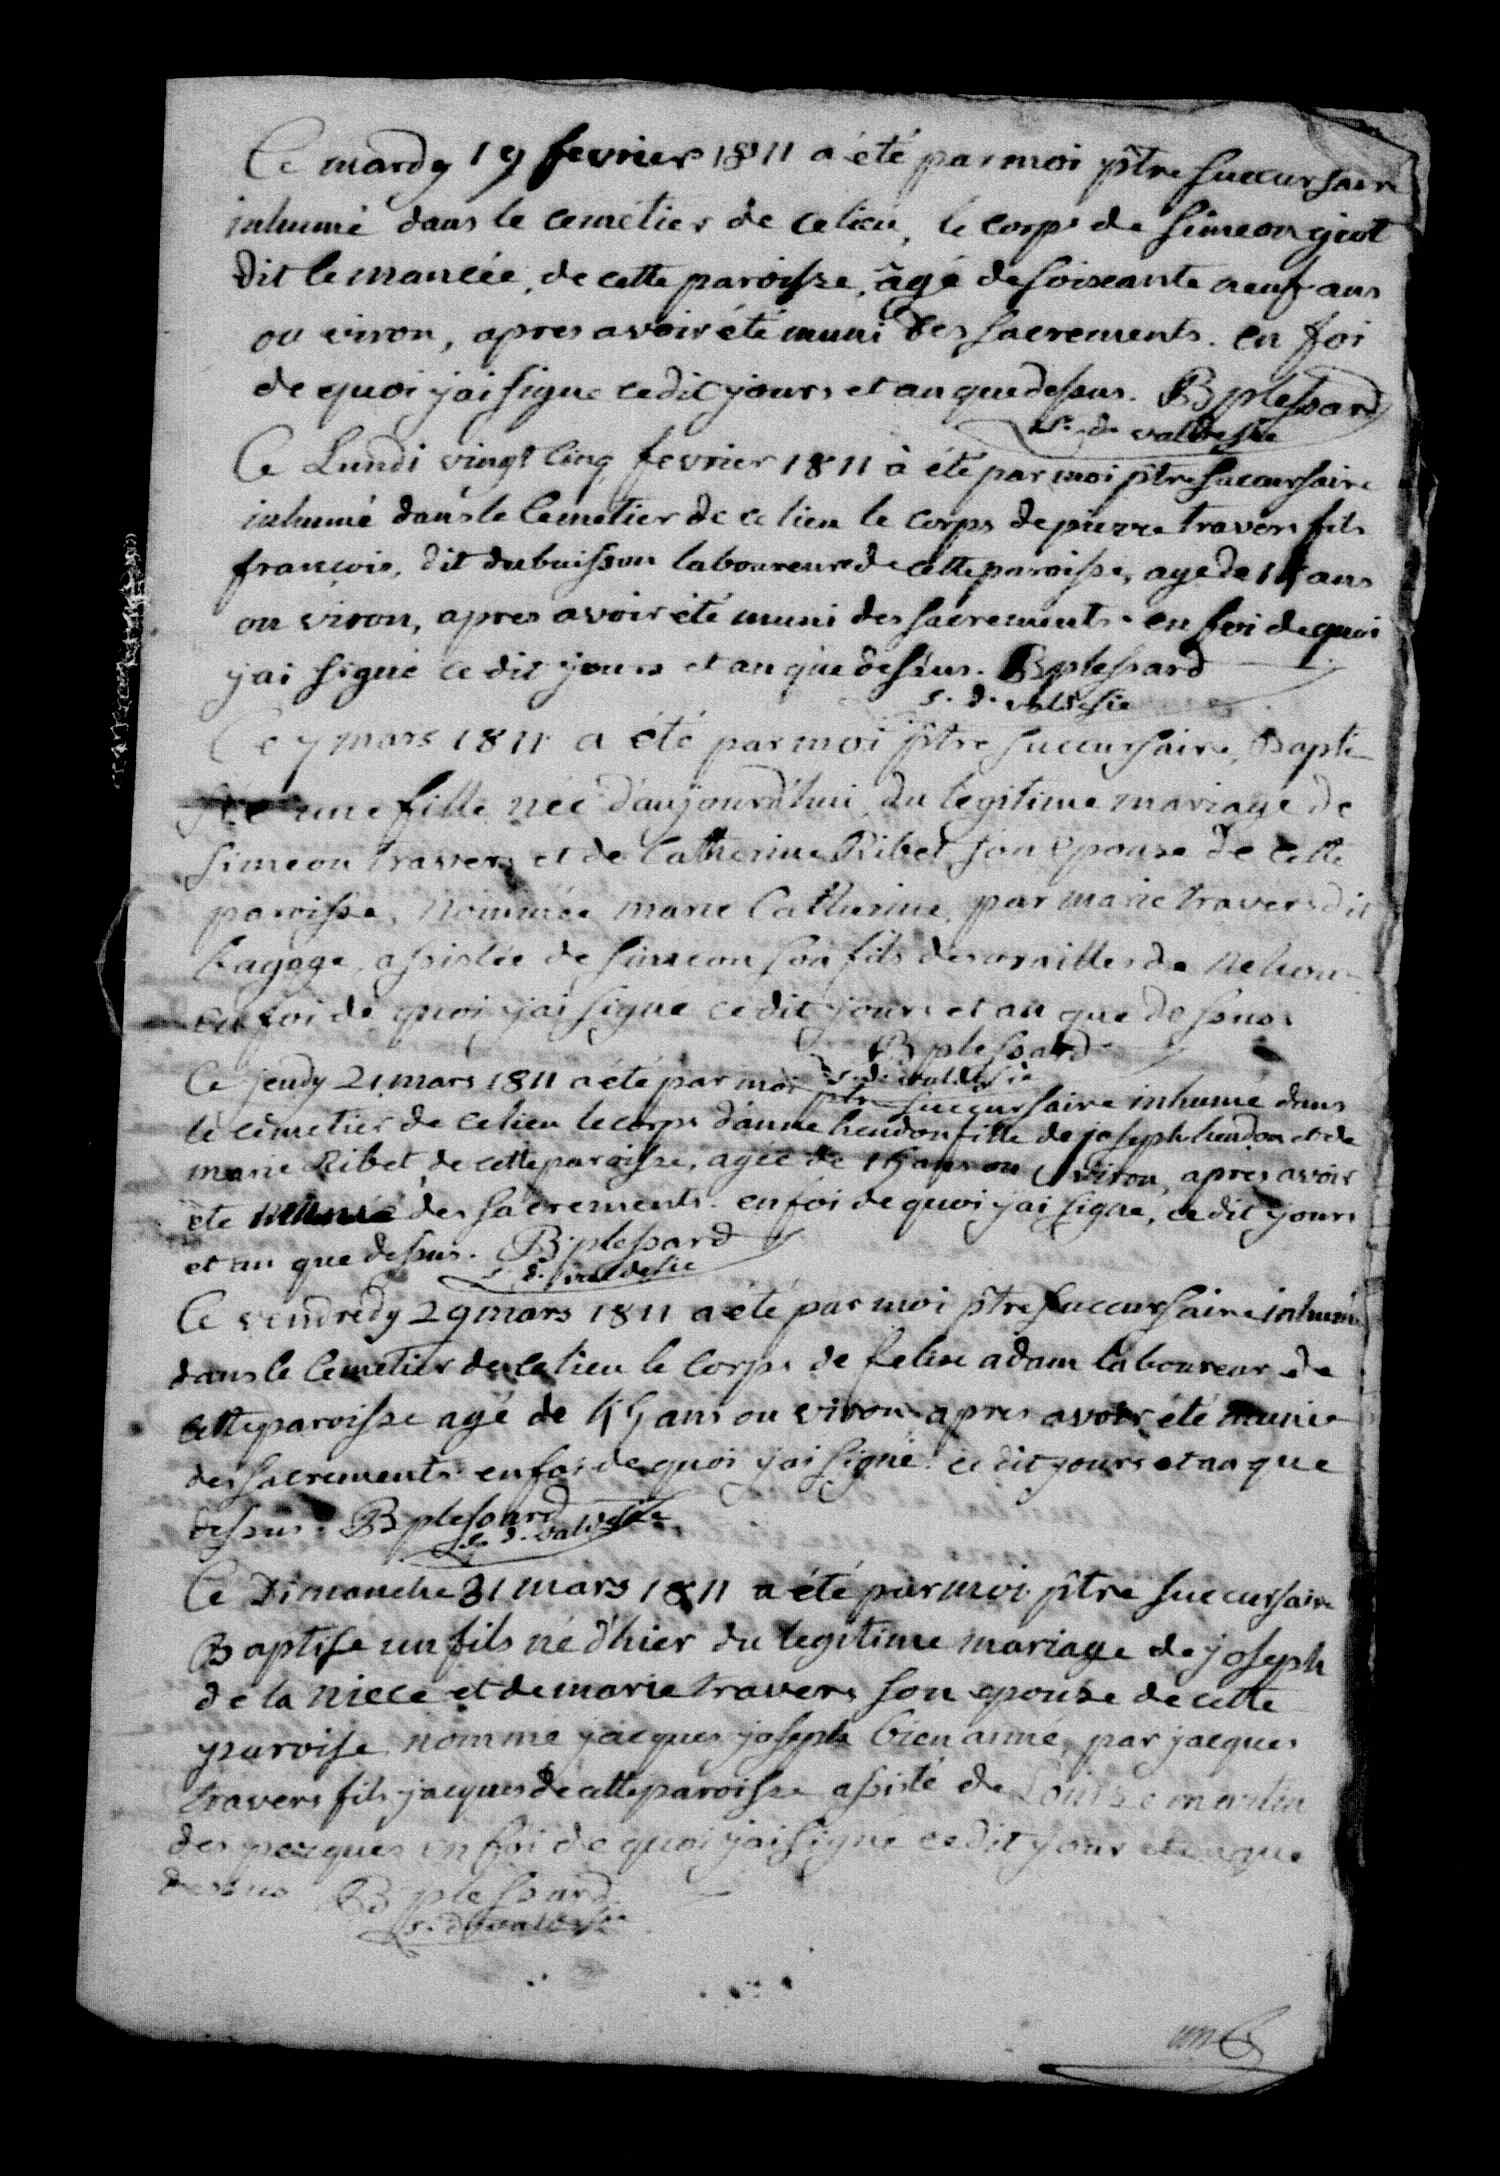 Ce mardy 19 fevrier 1811 a été par moi ptre succursaire
inhumé dans le cemetier de ce lieu, le corps de simeon giot
dit le mancée, de cette paroisse, âgé de soixante neuf ans
ou viron, apres avoir été muni des sacrements. en foi
de quoi j'ai signe ce dit jours et an que dessus. B plessard
s. d. valdesie
Ce Lundi vingt cinq fevrier 1811 à été par moi ptre succursaire
inhumé dans le Cemetier de ce lieu le corps de pierre travers fils
francois, dit dubuisson laboureur de cette paroisse, agé de ans
ou viron, apres avoir été muni des sacrements. en foi de quoi
j'ai signé ce dit jours et an que dessus. B plessard
s. d. valdesie
Ce 7 mars 1811 a été par moi ptre succursaire, Bapti
une fille née d'aujourd'hui du legitime mariage de
simeon travers et de Catherine Ribet son epouse de cette
paroisse, nommée marie Catherine, par marie travers dit
assistée de simeon son fils de
en foi de quoi j'ai signé ce dit jours et an que dessus
B plessard
s. d. valdesie
Ce jeudy 21 mars 1811 a été par moi ptre succursaire inhume dans
le cemetier de ce lieu le corps d'anne heudon fille de joseph heudon et de
marie Ribet de cette paroisse, agée de 15 ans ou viron, apres avoir
ete munie des sacrements. en foi de quoi j'ai signe, ce dit jours
et an que dessus. B plessard
s. d. valdesie
Ce vendredy 29 mars 1811 a été par moi ptre succursaire inhumé
dans le Cemetier de ce lieu le corps de felix adam laboureur de
cette paroisse agé de 45 ans ou viron apres avoir été munie
des sacrements en foi de quoi j'ai signé ce dit jours et an que
dessus. B plessard
s. d. valdesie
Ce Dimanche 31 mars 1811 a été par moi ptre succursaire
Baptise un fils né d'hier du legitime mariage de joseph
de la niece et de marie travers son epouse de cette
paroise nomme jacques joseph bien aimé, par jacques
travers fils jacques de cette paroisse assisté de Louise martin
des perques en foi de quoi j'ai signe ce dit jour et an que
dessus B plessard
s. d. valdesie